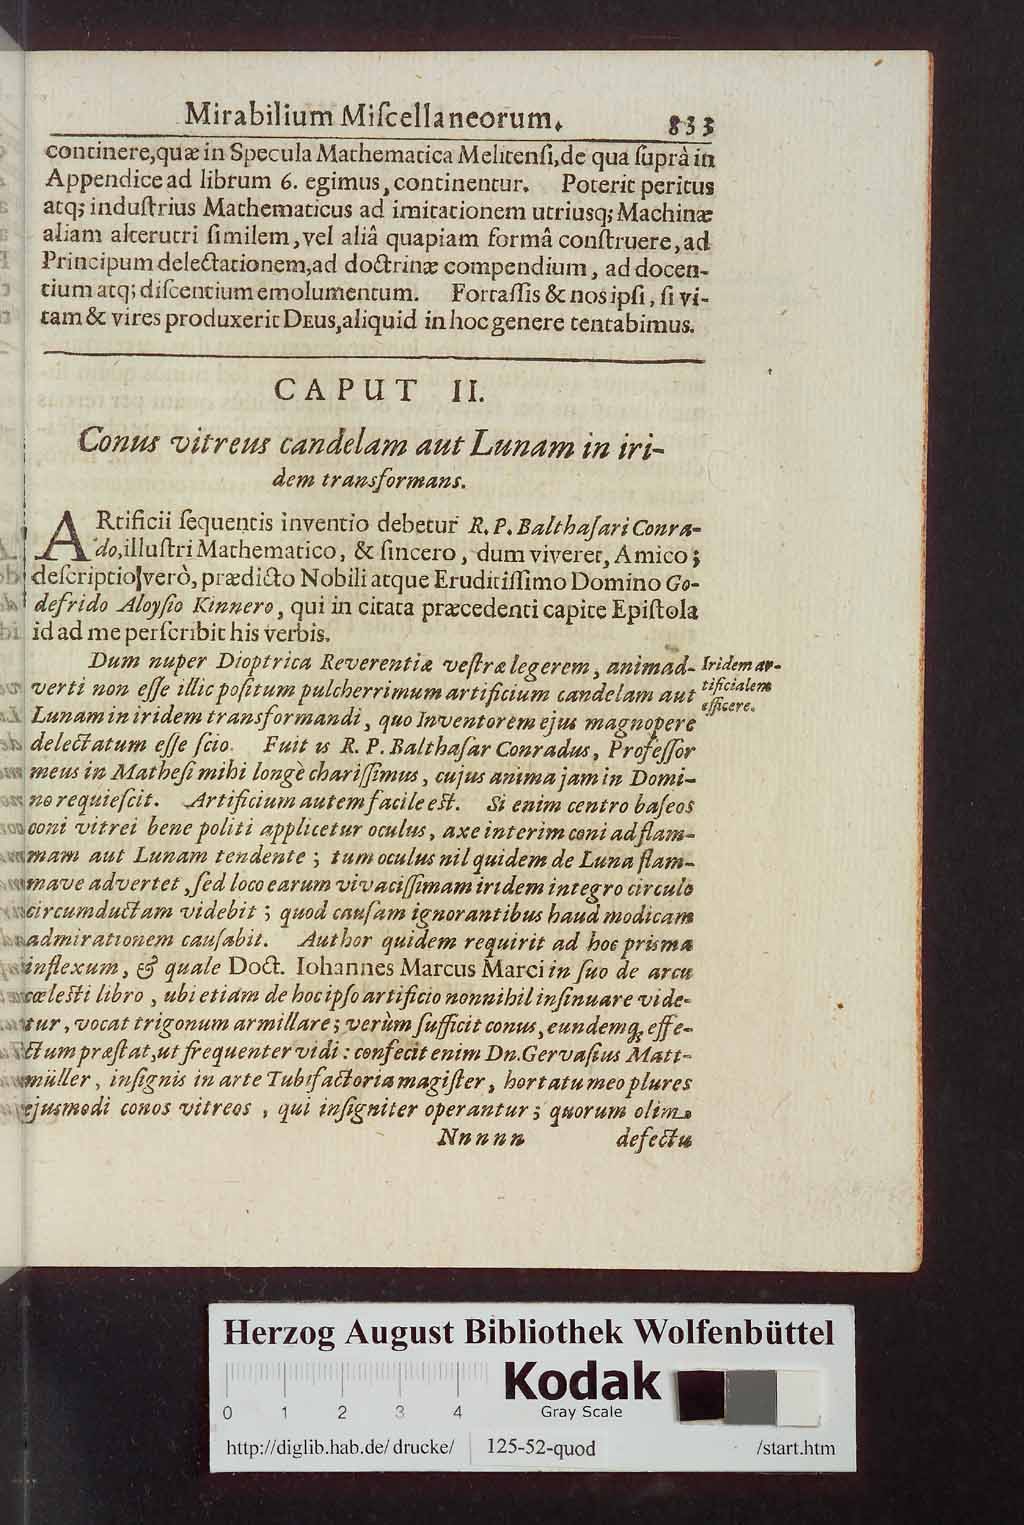 Mirabilium Miſcellaneorum. 833
continere,quæ in Specula Mathematica Melitenſi,de quâ ſuprà in
Appendice ad librum 6. egimus, continentur. Poterit peritus
atq; induſtrius Mathematicus ad imitationem utriusq; Machinæ
aliam alterutri ſimilem, vel aliâ quapiam formâ conſtruere, ad
Principum delectationem,ad doctrinæ compendium, ad docen-
tium atq; diſcentium emolumentum. Fortaſſis & nos ipſi, ſi vi-
tam & vires produxerit DEUS,aliquid in hoc genere tentabimus.
CAPUT II.
Conus vitreus candelam aut Lunam in iri-
dem transformans.
ARtificii ſequentis inventio debetur R. P. Balthaſari Conra-
do,illuſtri Mathematico, & ſincero, dum viveret, Amico;
deſcriptio verò, prædicto Nobili atque Eruditiſſimo Domino Go-
defrido Aloyſio Kinnero, qui in citata præcedenti capite Epiſtola
id ad me perſcribit his verbis.
Dum nuper Dioptrica Reverentiæ veſtræ legerem, animad-
verti non eſſe illic poſitum pulcherrimum artificium candelam aut
Lunam in iridem transformandi, quo Inventorem ejus magnopere
delectatum eſſe ſcio. Fuit is R. P. Balthaſar Conradus, Profeſſor
meus in Matheſi mihi longè chariſſimus, cujus anima jam in Domi-
no requieſcit. Artificium autem facile eſt. Si enim centro baſeos
coni vitrei bene politi applicetur oculus, axe interim coni ad flam-
mam aut Lunam tendente; tum oculus nil quidem de Luna flam-
mave advertet, ſed loco earum vivaciſſimam iridem integro circulo
circumductam videbit; quod cauſam ignorantibus haud modicam
admirationem cauſabit. Author quidem requirit ad hoc prisma
inflexum, & quale Doct. Iohannes Marcus Marci in ſuo de arcu
cœleſti libro, ubi etiam de hoc ipſo artificio nonnihil inſinuare vide-
tur, vocat trigonum armillare; verùm ſufficit conus, eundemq; effe-
ctum præſtat,ut frequenter vidi: confecit enim Dn. Gervaſius Matt-
müller, inſignis in arte Tubifactoria magiſter, hortatu meo plures
ejusmodi conos vitreos, qui inſigniter operantur; quorum olim
Nnnnn defectu
Iridem ar-
tificialem
efficere.
Herzog August Bibliothek Wolfenbüttel
0 1 2 3 4
Kodak
Gray Scale
http://diglib.hab.de/drucke/ 125-52-quod /start.htm